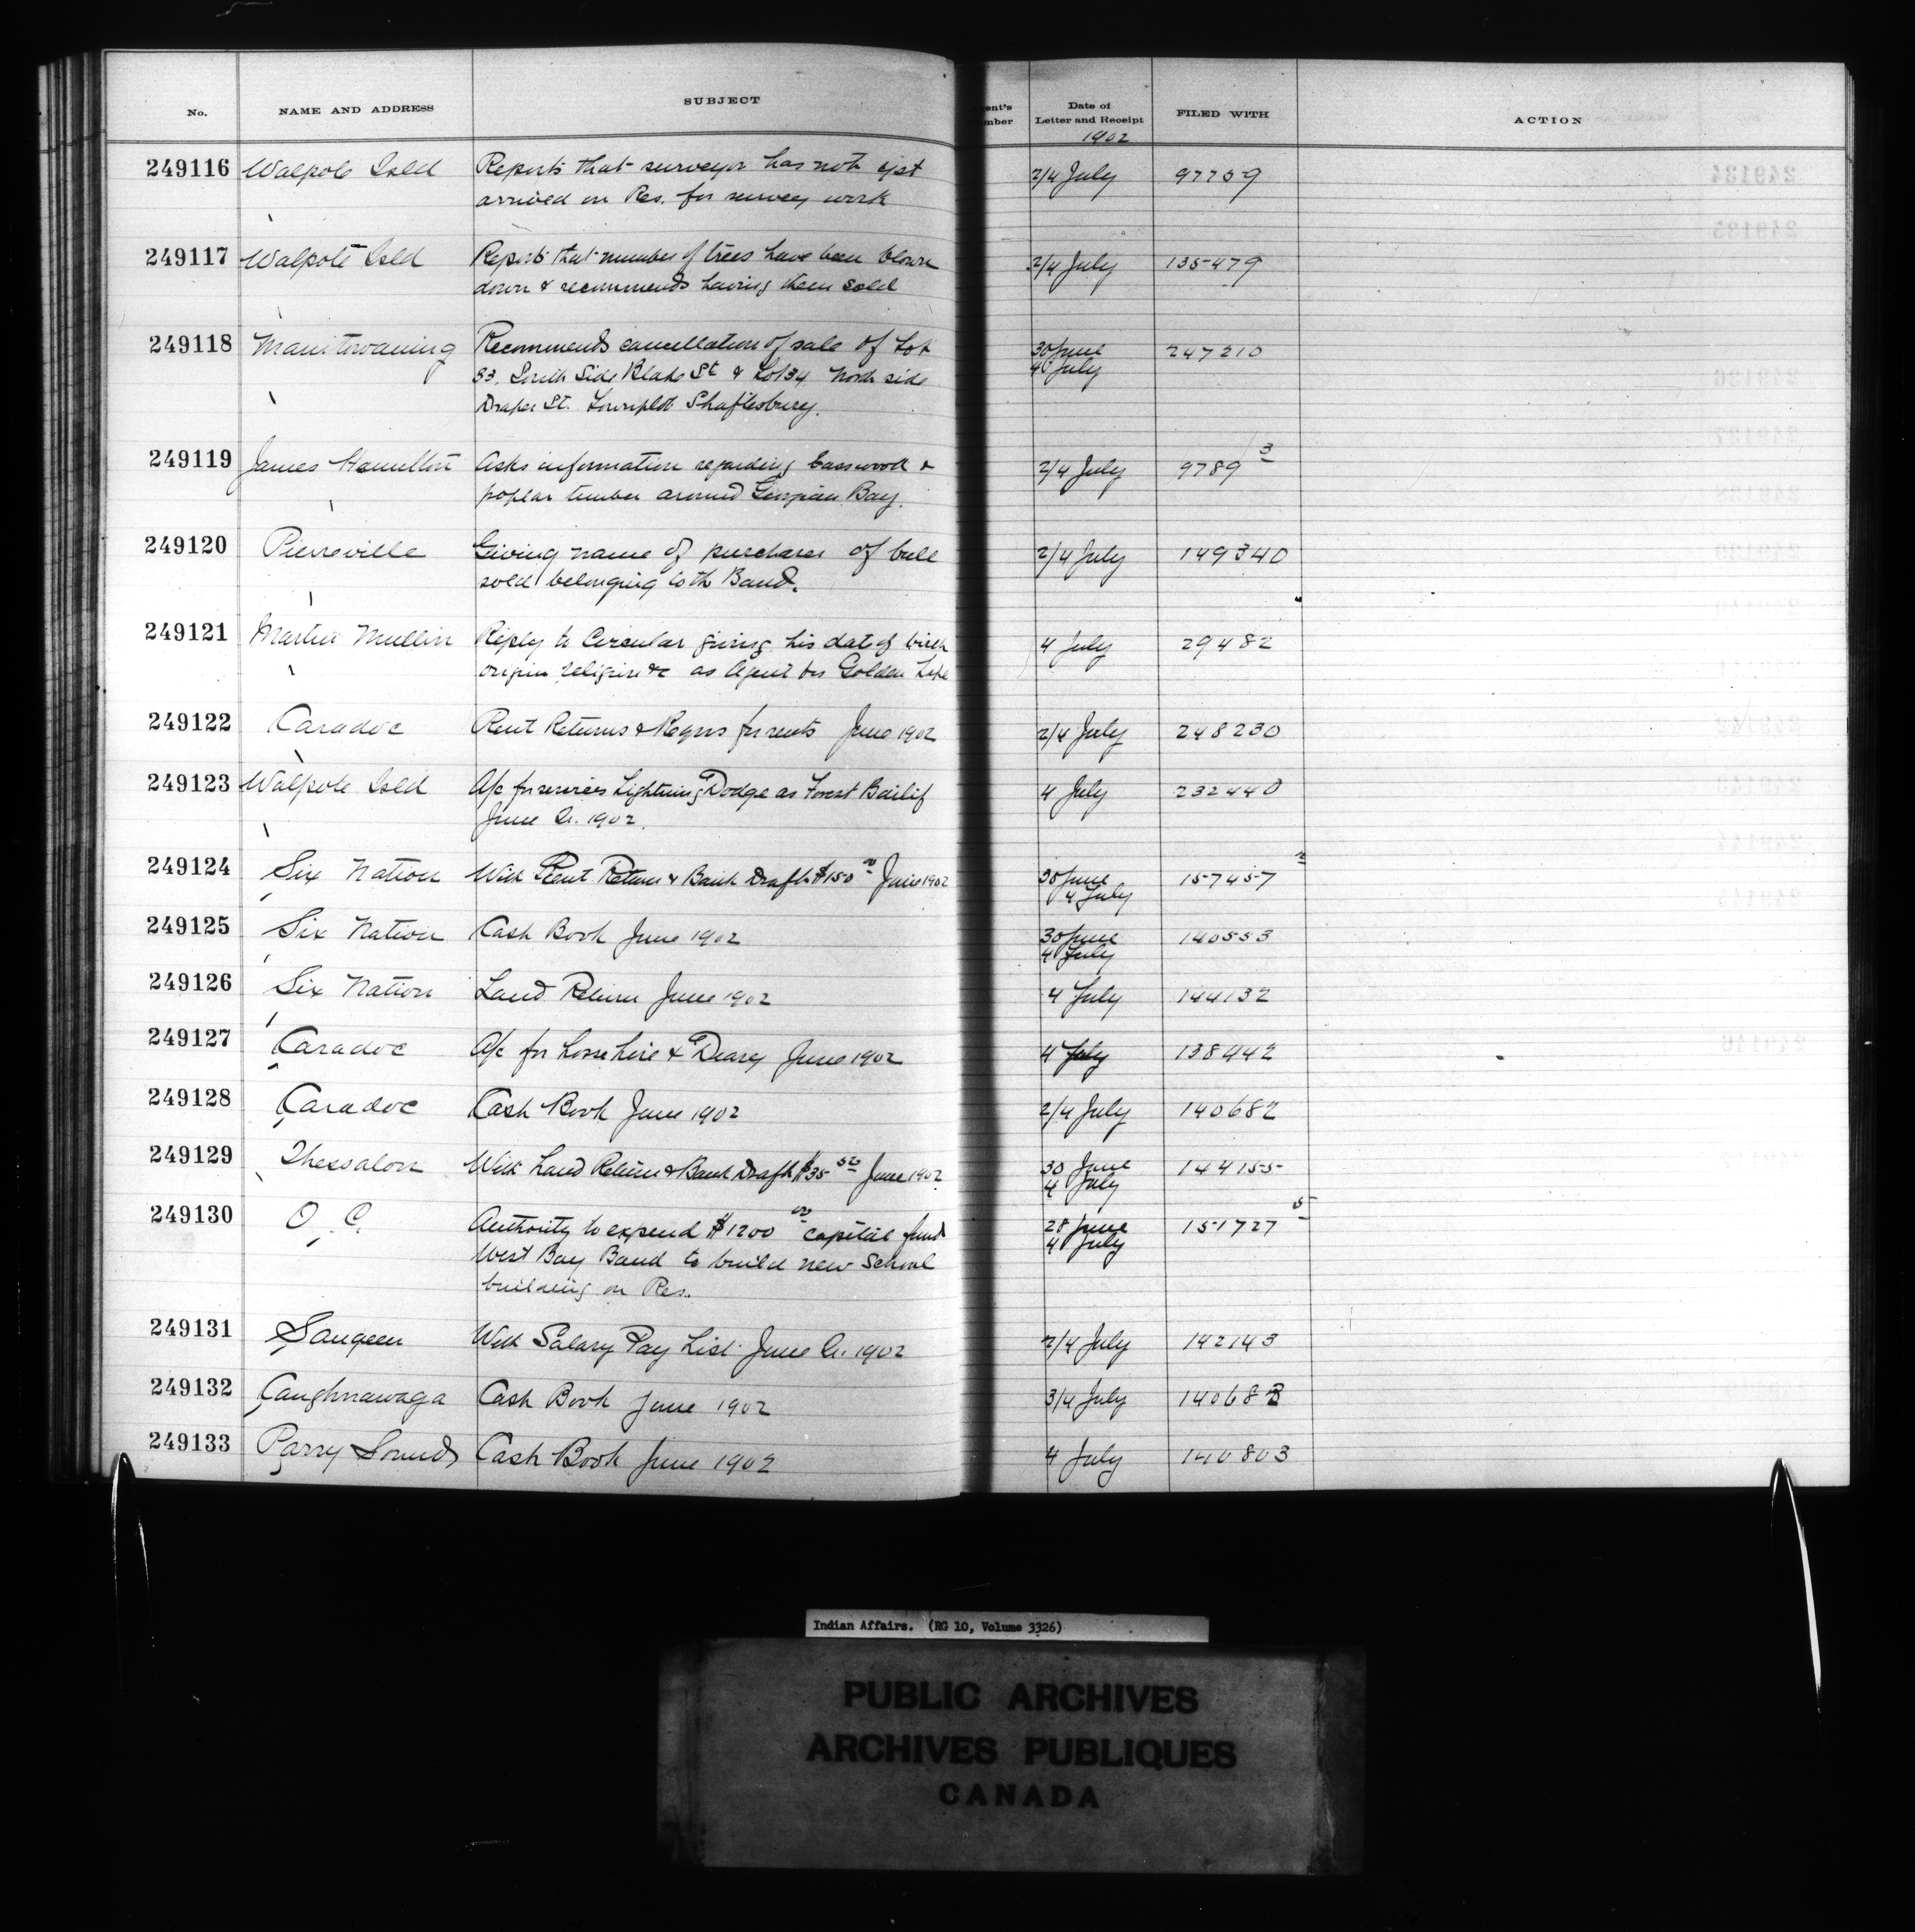 No. NAME AND ADDRESS SUBJECT ent's mber Date of Letter and Receipt FILED WITH ACTION
1902
249116 Walpole Isld Reports that surveyor has not yet 2/4 July 97759
arrived on Res. for survey work
249117 Walpole Isld Reports that number of trees have been blown 2/4 July 135479
down & recommends having them sold
249118 Manitowaning Recommends cancellation of sale of Lot 30 June 247210
33, South Side Blake St & Lot 34 North side 4 July
Draper St. Townplot Shaftesbury.
249119 James Hamilton Asks information regarding basswood & 2/4 July 9789 3
poplar timber around Georgian Bay.
249120 Pierreville Giving name of purchaser of bull 2/4 July 149340
sold belonging to th Band.
249121 Martin Mullin Reply to Circular giving his date of birth 4 July 29482
origin religion &c as Agent for Golden Lake
249122 Caradoc Rent Returns & Reqns for rents June 1902 2/4 July 248230
249123 Walpole Isld A/c for services Lightning Dodge as Forest Bailif 4 July 232440
June Qr. 1902.
249124 Six Nation With Rent Return & Bank Draft $150 00 June 1902 30 June 157457 2
4 July
249125 Six Nation Cash Book June 1902 30 June 140553
4 July
249126 Six Nation Land Return June 1902 4 July 144132
249127 Caradoc A/c for horse hire & Diary June 1902 4 July 138442
249128 Caradoc Cash Book June 1902 2/4 July 140682
249129 Thessalon With Land Return & Bank Draft $35 50 June 1902 30 June 144155
4 July
249130 O. C. Authority to expend $1200 00 capital fund 28 June 151727 5
West Bay Band to build new School 4 July
building on Res.
249131 Saugeen With Salary Pay List June Qr. 1902 2/4 July 142143
249132 Caughnawaga Cash Book June 1902 3/4 July 140683
249133 Parry Sound Cash Book June 1902 4 July 140803
Indian Affairs. (RG 10, Volume 3326)
PUBLIC ARCHIVES
ARCHIVES PUBLIQUES
CANADA